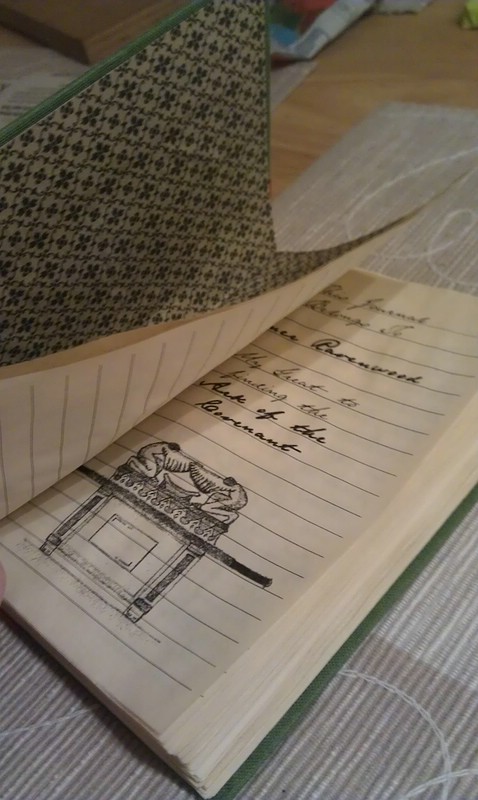 Journal
Belongs To
Ravenwood
My Quest to
finding the
Ark of the
Covenant